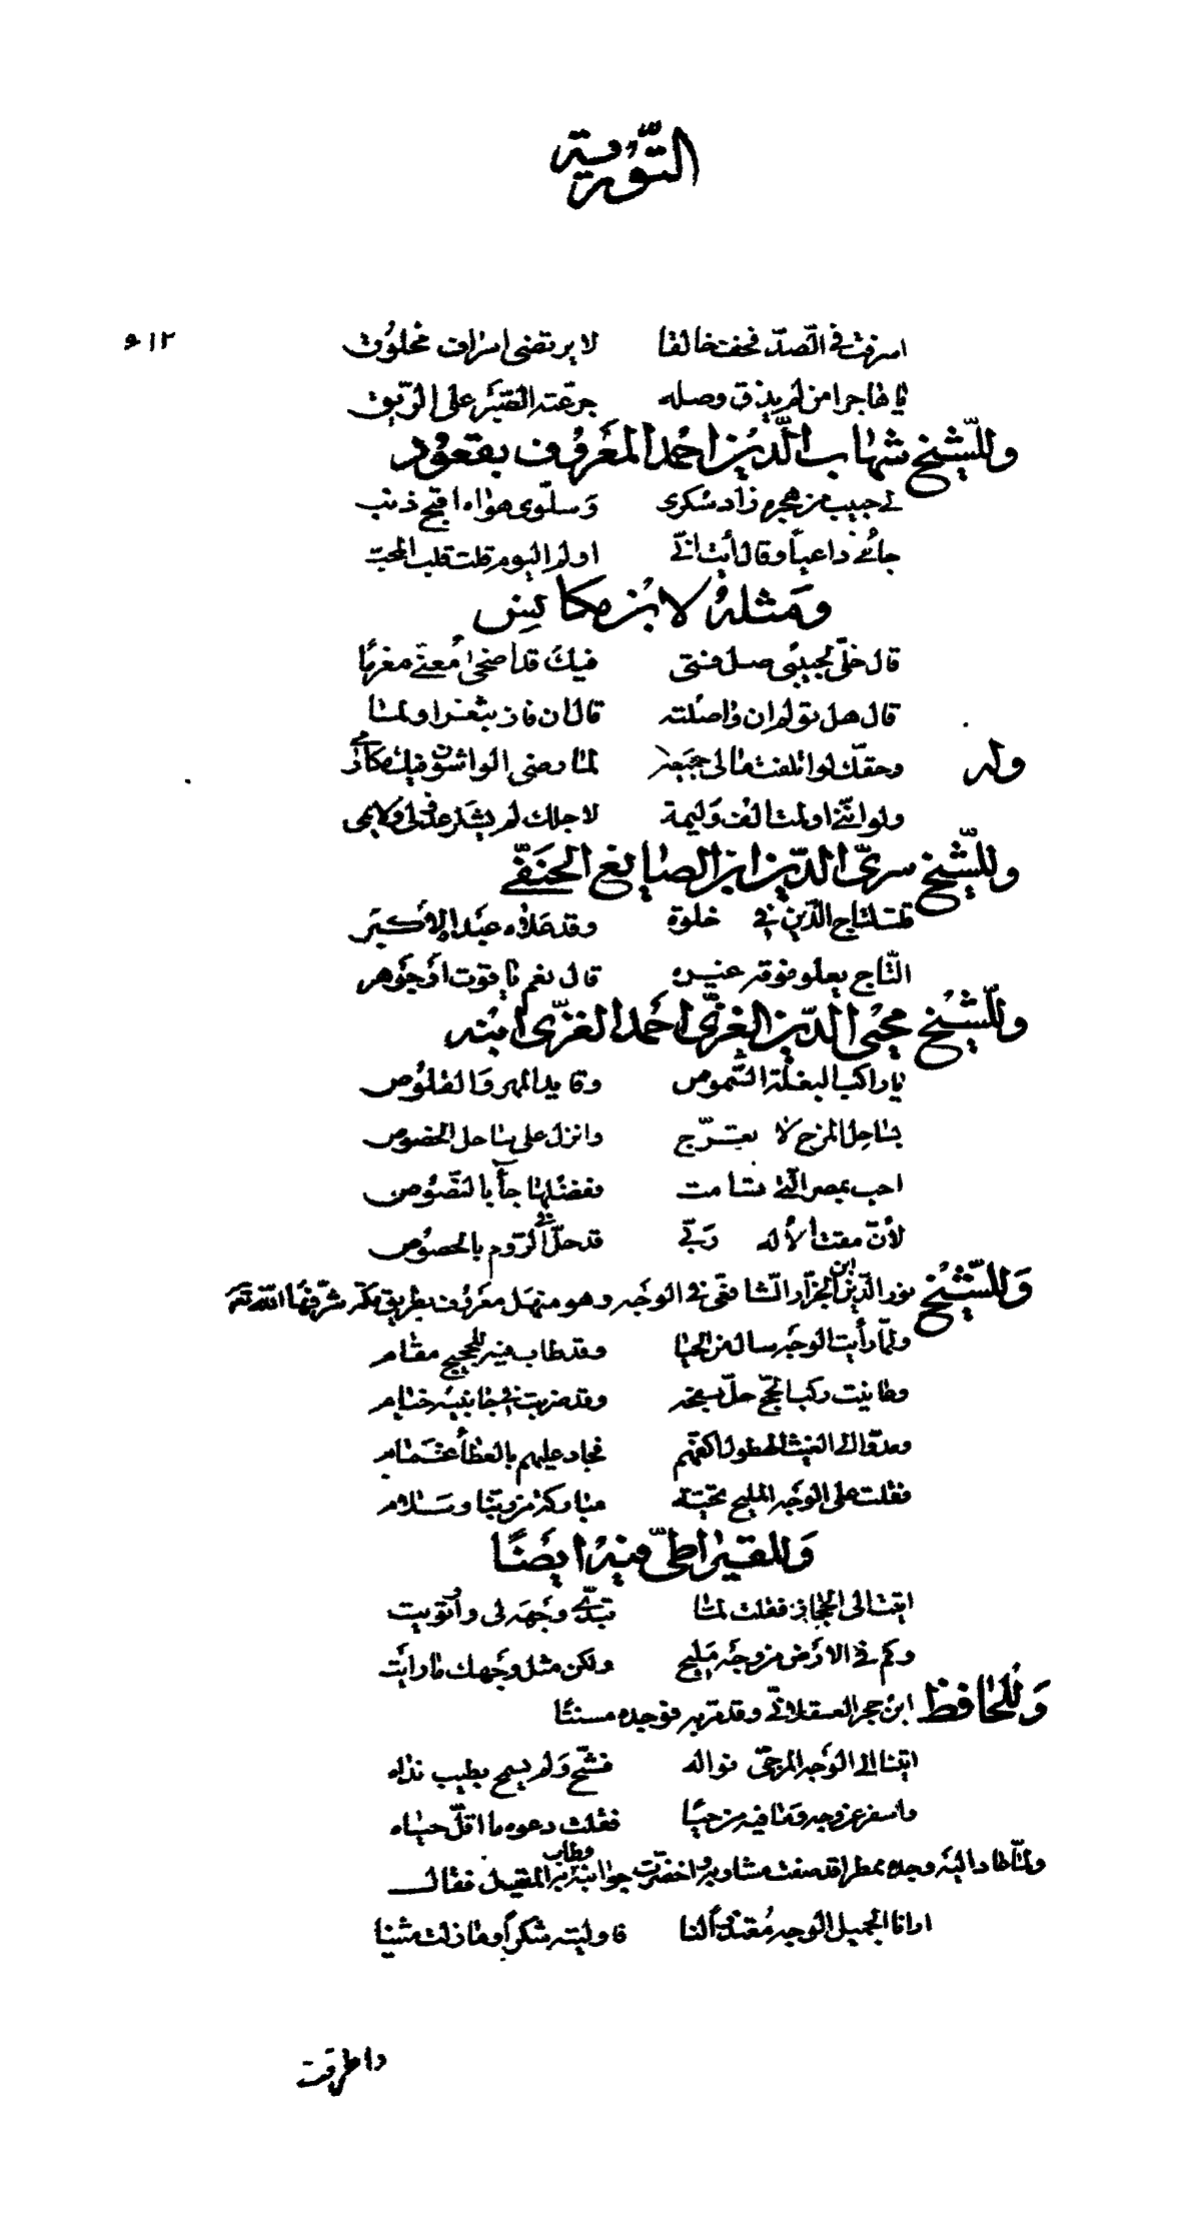 التورية
٢١٢
اسرفت فى الصدّ فخف خالقا لا يرتضى اسراف مخلوق
يا هاجرا من لم يذق وصله جرعته الصبر على الريق
وللشيخ شهاب الدين احمد المعروف بقعود
لى حبيب من هجره زاد سكرى وسلوى هواه اقبح ذنب
جائنى داعيا وقال أيت انى اولم اليوم قلت قلب المحب
ومثله لابن مكانس
قال خلى لحبيبى صل فتى فيك قد اضحى معنى مغرما
قال هل يولم ان واصلته قال ان فاز بثغر اولما
وله وحقك لو اتلفت مالى جميعه لما رضى الواشون فيك مكانى
ولو اننى اولمت الف وليمة لاجلك لم
وللشيخ سرى الدين ابن الصايغ الحنفى
قلت لتاج الدين فى خلوة وقد علاه عبده الأكبر
التاج يعلو فوقه غيره قال نعم ياقوت او جوهر
وللشيخ محيى الدين الغزى احمد الغزى ابنه
يا راكب البغلة الشموص وقايد المهر والقلوص
بساحل المرج لا تعرّج وانزل على ساحل الخصوص
احب بمصر التى تسامت ففضلها جأ بالنصوص
لأن مقت الأله ربى قد حلّ فى الروم بالخصوص
وللشيخ نور الدين ابن الجزار الشافعى فى الوجه وهو منهل معروف بطريق مكة شرفها الله تع
ولما رأيت الوجه سال من الحيا وقد طاب فيه للحجيج مقام
وعاينت ركب الحج حلّ بسفحه وقد ضربت فى جانبيه خيام
ومدّوا الى الغيث الهطول اكفهم فجاد عليهم بالعطأ غمام
فقلت على الوجه المليح تحية مباركة من ربنا وسلام
وللقيراطى فيه ايضا
اتيت الى الحجاز فقلت لما تبدّى وجهه لى وارتويت
وكم فى الارض من وجه مليح ولكن مثل وجهك ما رايت
وللحافظ ابن حجر العسقلانى وقد مر به فوجده مسنتا
اتينا الى الوجه المرجى نواله فشح ولم يسمح بطيب نداه
واسفر عن وجه وما فيه من حيا فقلت دعوه ما اقل حياه
ولما عاد اليه وجده ممطرا قد صفت مشاربه واخضرت جوانبه وطاب به المقيل فقال
ارانا الجميل الوجه معتذرا لنا فاوليته شكرا وما زلت مثنيا
واطرقت